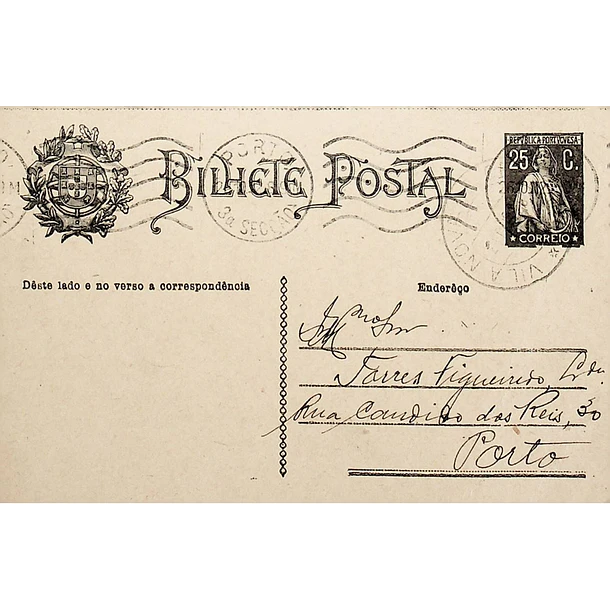 BILHETE POSTAL
REPUBLICA PORTUGUESA
25 C.
CORREIO
PORTO
3ª SECÇÃO
VILA NOVA
Dêste lado e no verso a correspondência
Enderêço
Torres Figueiredo, Lda.
Rua Candido dos Reis, 30
Porto